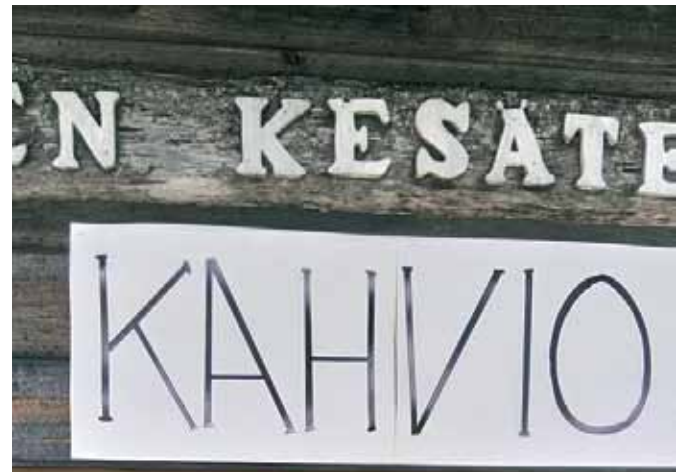 EN KESÄTE
KAHVIO